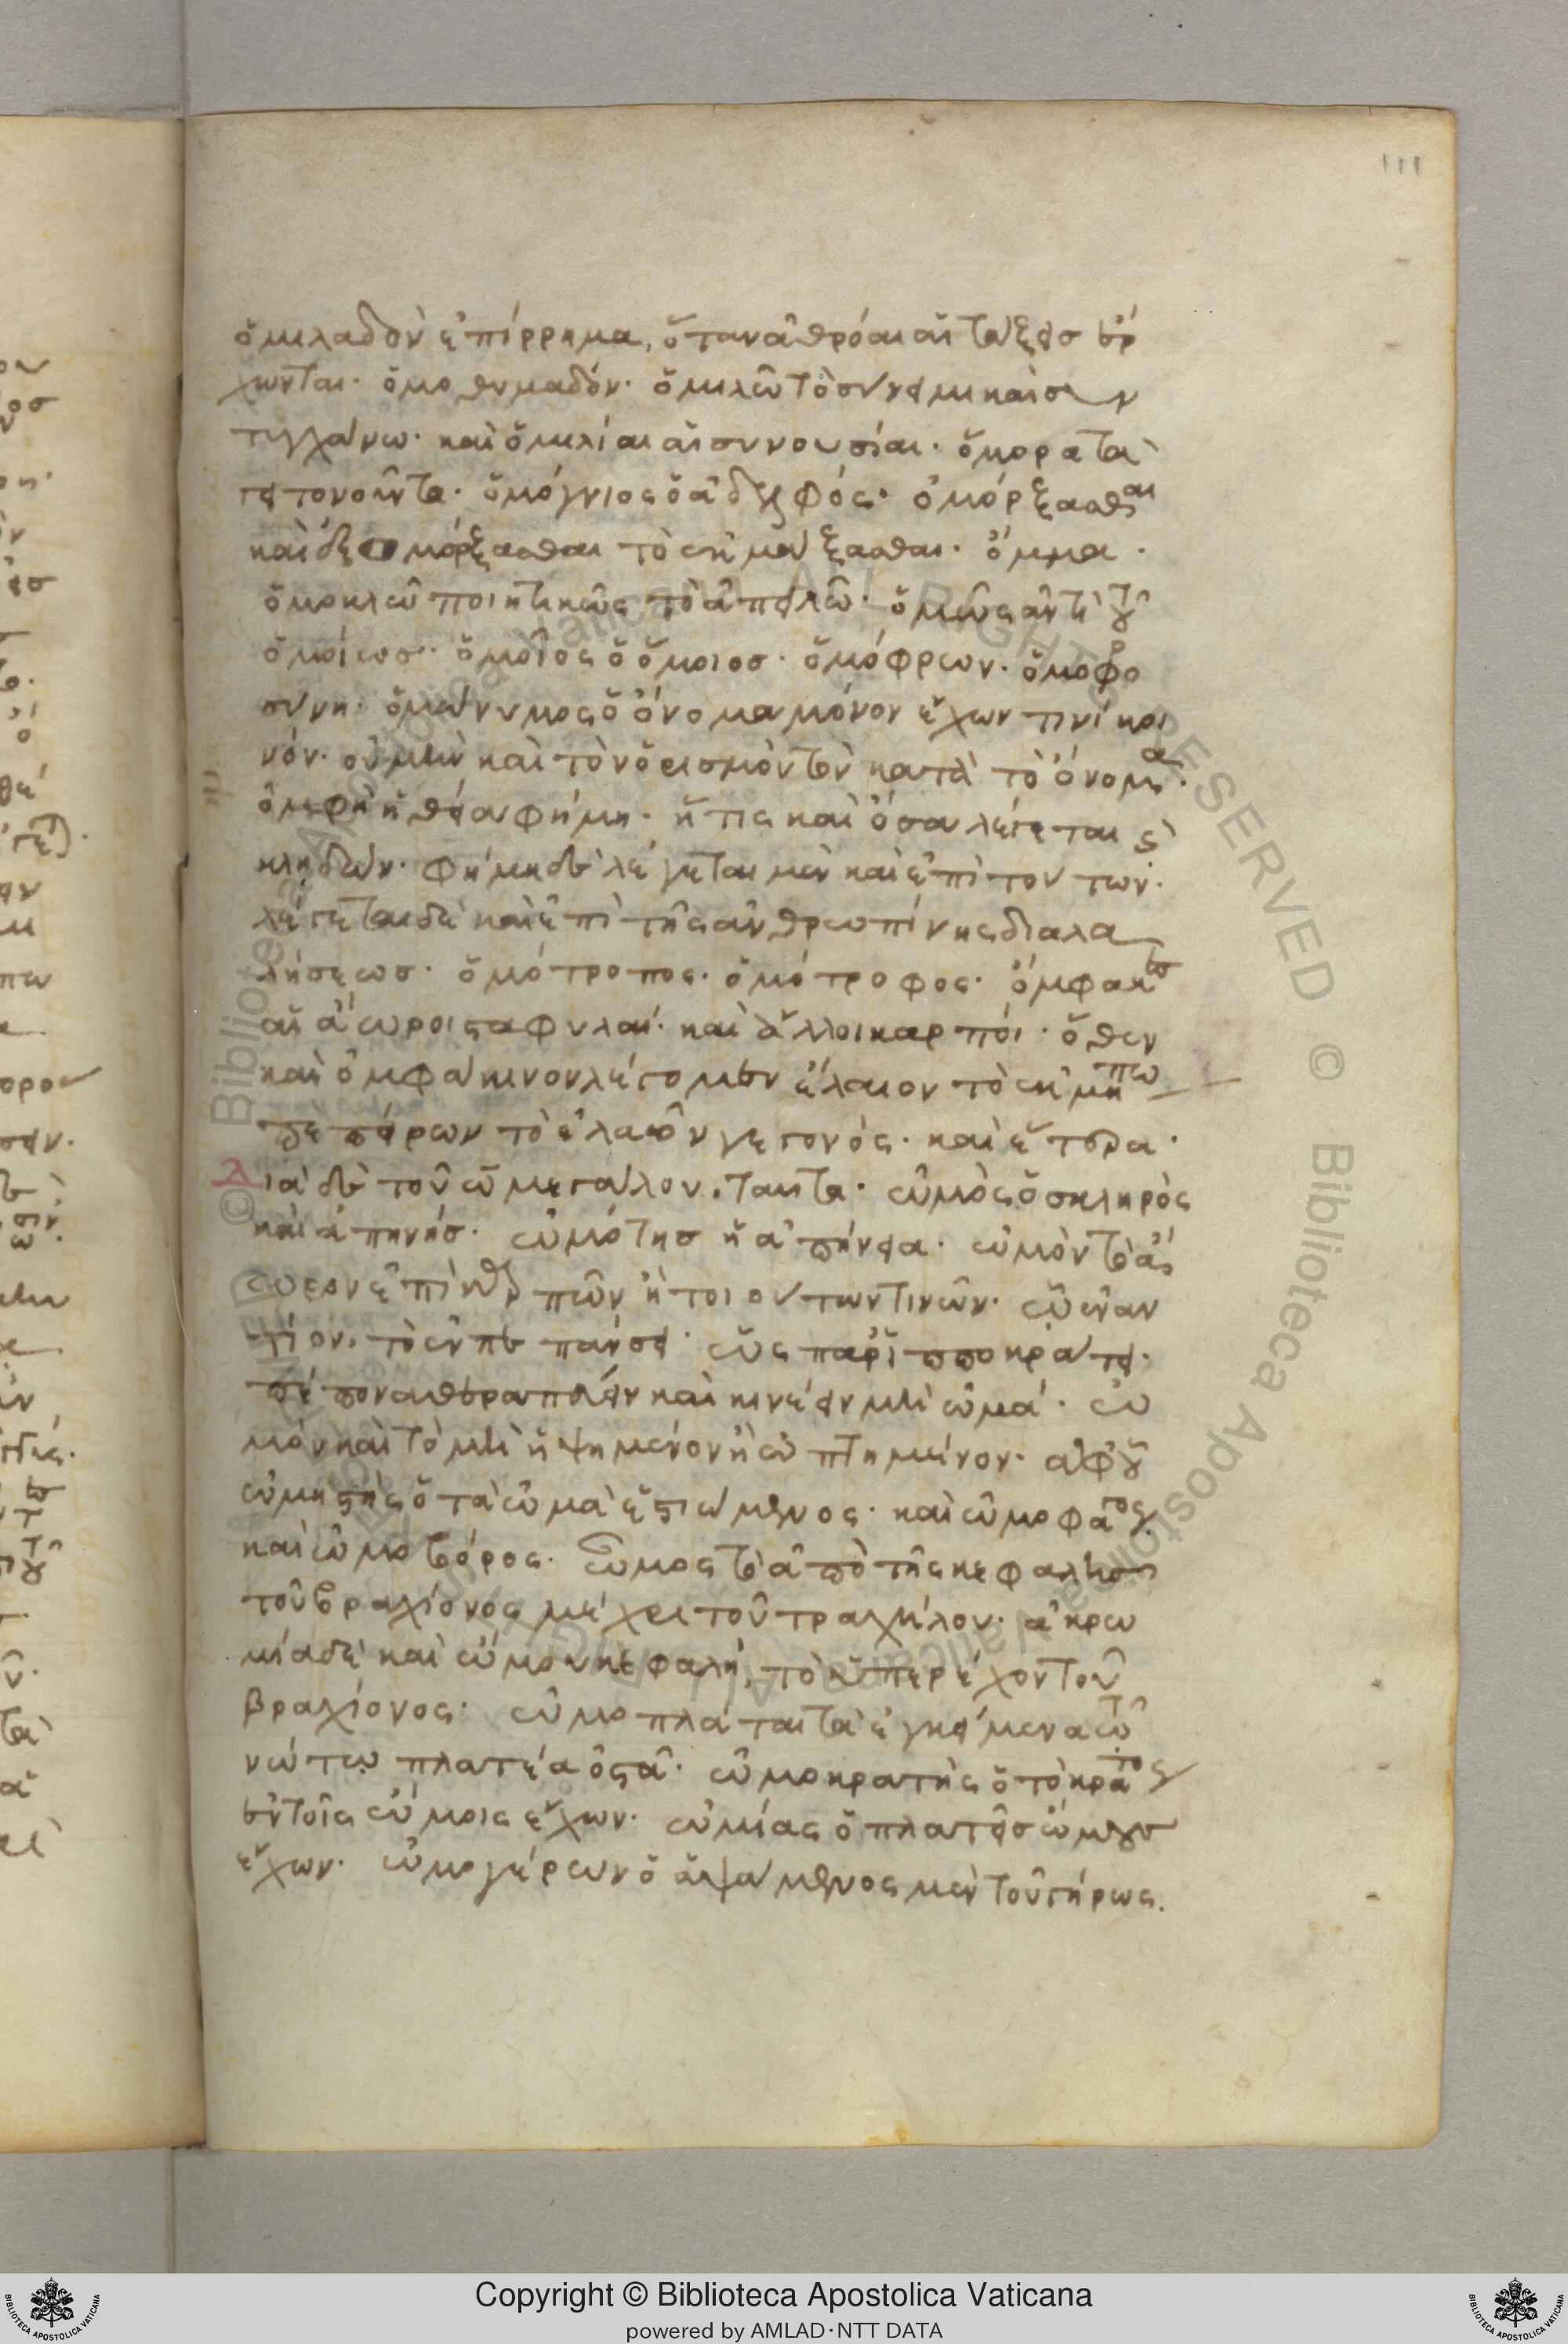 111
ὁμιλαδὸν ἐπίρρημα, ὅταν ἀθρόαι αἱ τάξεισ ἔρ
χωνται. ὁμοθυμαδόν. ὁμιλῶ τὸ σύνειμι καὶ συν
τυγχάνω. καὶ ὁμιλίαι αἱ συνουσίαι. ὅμορα τὰ
γειτονοῦντα. ὁμόγνιος ὁ ἀδελφός. ὀμόρξασθαι
καὶ ἐξομόρξασθαι τὸ ἐκμάξασθαι. ὄμμα.
ὁμοκλῶ ποιητικῶς τὸ ἀπειλῶ. ὁμῶς ἀντὶ τοῦ
ὁμοίωσ. ὁμοῖος ὁ ὅμοιοσ. ὁμόφρων. ὁμοφρο
σύνη. ὁμώνυμος ὁ ὄνομα μόνον ἔχων τινὶ κοι
νόν. οὐ μὴν καὶ τὸν ὁρισμὸν τὸν κατὰ τὸ ὄνομα.
ὀμφὴ ἡ θεία φήμη. ἥτις καὶ ὄσσα λέγεται καὶ
κληδών. φήμη δὲ λέγεται μὲν καὶ ἐπὶ τούτων.
λέγεται δὲ καὶ ἐπὶ τῆς ἀνθρωπίνης διαλα
λήσεωσ. ὁμότροπος. ὁμότροφος. ὄμφακεσ
αἱ ἄωροι σταφυλαί. καὶ ἄλλοι καρποί. ὅθεν
καὶ ὀμφάκινον λέγομεν ἔλαιον τὸ ἐκ μήπω
πεπείρων τὸ ἐλαιῶν γεγονός. καὶ ἕτερα.
Διὰ δὲ τοῦ ω μεγάλου, ταῦτα. ὠμὸς ὁ σκληρὸς
καὶ ἀπηνήσ. ὠμότησ ἡ ἀπήνεια. ὠμὸν τὸ ἄ
ωρον ἐπὶ καρπῶν ἢ τοιούτων τινῶν. ᾧ ἐναν
τίον, τὸ ἐν πεπάνσει. ὡς παρ' ἱπποκράτει.
πέπονα θεραπεύειν καὶ κινέειν μὴ ὠμά. ὠ
μὸν καὶ τὸ μὴ ἡψημένον ἢ ὠπτημένον. ἀφ' οὗ
ὠμηστὴς ὁ τὰ ὠμὰ ἐστιώμενος. καὶ ὠμοφάγος
καὶ ὠμοβόρος. ὦμος τὸ ἀπὸ τῆς κεφαλῆσ
τοῦ βραχίονός μέχρι τοῦ τραχήλου. ἀκρω
μία δὲ καὶ ὤμου κεφαλή, τὸ ὑπερέχον τοῦ
βραχίονος. ὠμοπλάται τὰ ἐγκείμενα τῷ
νώτῳ πλατέα ὀστᾶ. ὠμοκρατὴς ὁ τὸ κράτος
ἐν τοῖς ὤμοις ἔχων. ὠμίας ὁ πλατεῖσ ὤμουσ
ἔχων. ὠμογέρων ὁ ἁψάμενος μὲν τοῦ γήρως.
Copyright © Biblioteca Apostolica Vaticana
powered by AMLAD·NTT DATA